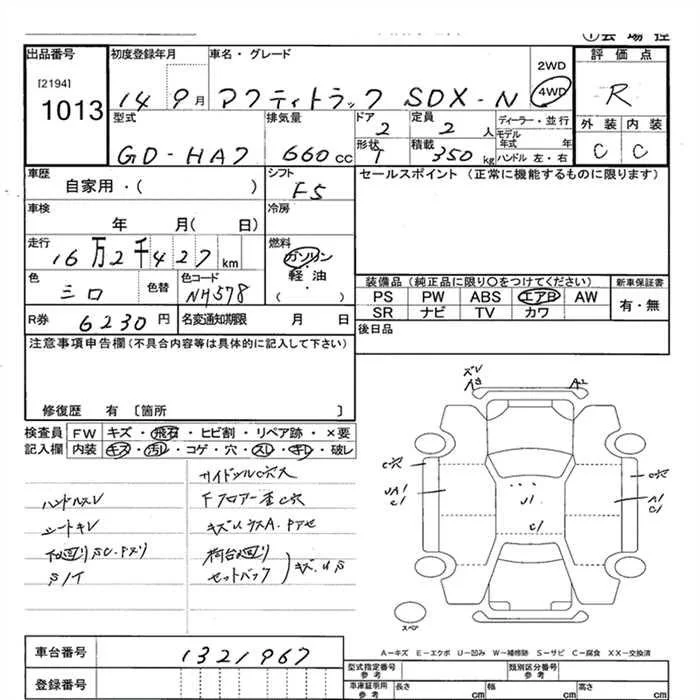 ① 会 場 控
出品番号 初度登録年月 車名・グレード 2WD 評 価 点
[2194] 1013 14 9月 アクティトラック SDX-N 4WD R
型式 排気量 ドア 定員 ディーラー・並行 外 装 内 装
GD-HA7 660cc 2 2人 モデル年式 年 C C
形状 T 積載 350kg ハンドル 左・右
車歴 シフト セールスポイント (正常に機能するものに限ります)
自家用・( ) F5
車検 冷房
年 月( 日)
走行 燃料
16万2千427km ガソリン・軽油
( ・ )
色 色替 色コード 装備品 (純正品に限り○をつけてください) 新車保証書
シロ NH578 PS PW ABS エアB AW 有・無
SR ナビ TV カワ
R券 6230円 名変通知期限 月 日 後日品
注意事項申告欄(不具合内容等は具体的に記入して下さい)
修復歴 有 〔箇所 〕
検査員 FW キズ・飛石・ヒビ割・リペア跡・×要
記入欄 内装 キズ・汚レ・コゲ・穴・スレ・キレ・破レ
サイドシルC穴大
ハンドルスレ
シートキレ
キズ.U.S
ズレ
A3 A2
C穴 C穴
UA1 C1 U1 A1 C1
C1
スペア
A-キズ E-エクボ U-凹み W-補修跡 S-サビ C-腐食 XX-交換済
車台番号 1321967 型式指定番号 参考 類別区分番号 参考
登録番号 車庫証明用 参考 長さ cm 幅 cm 高さ cm